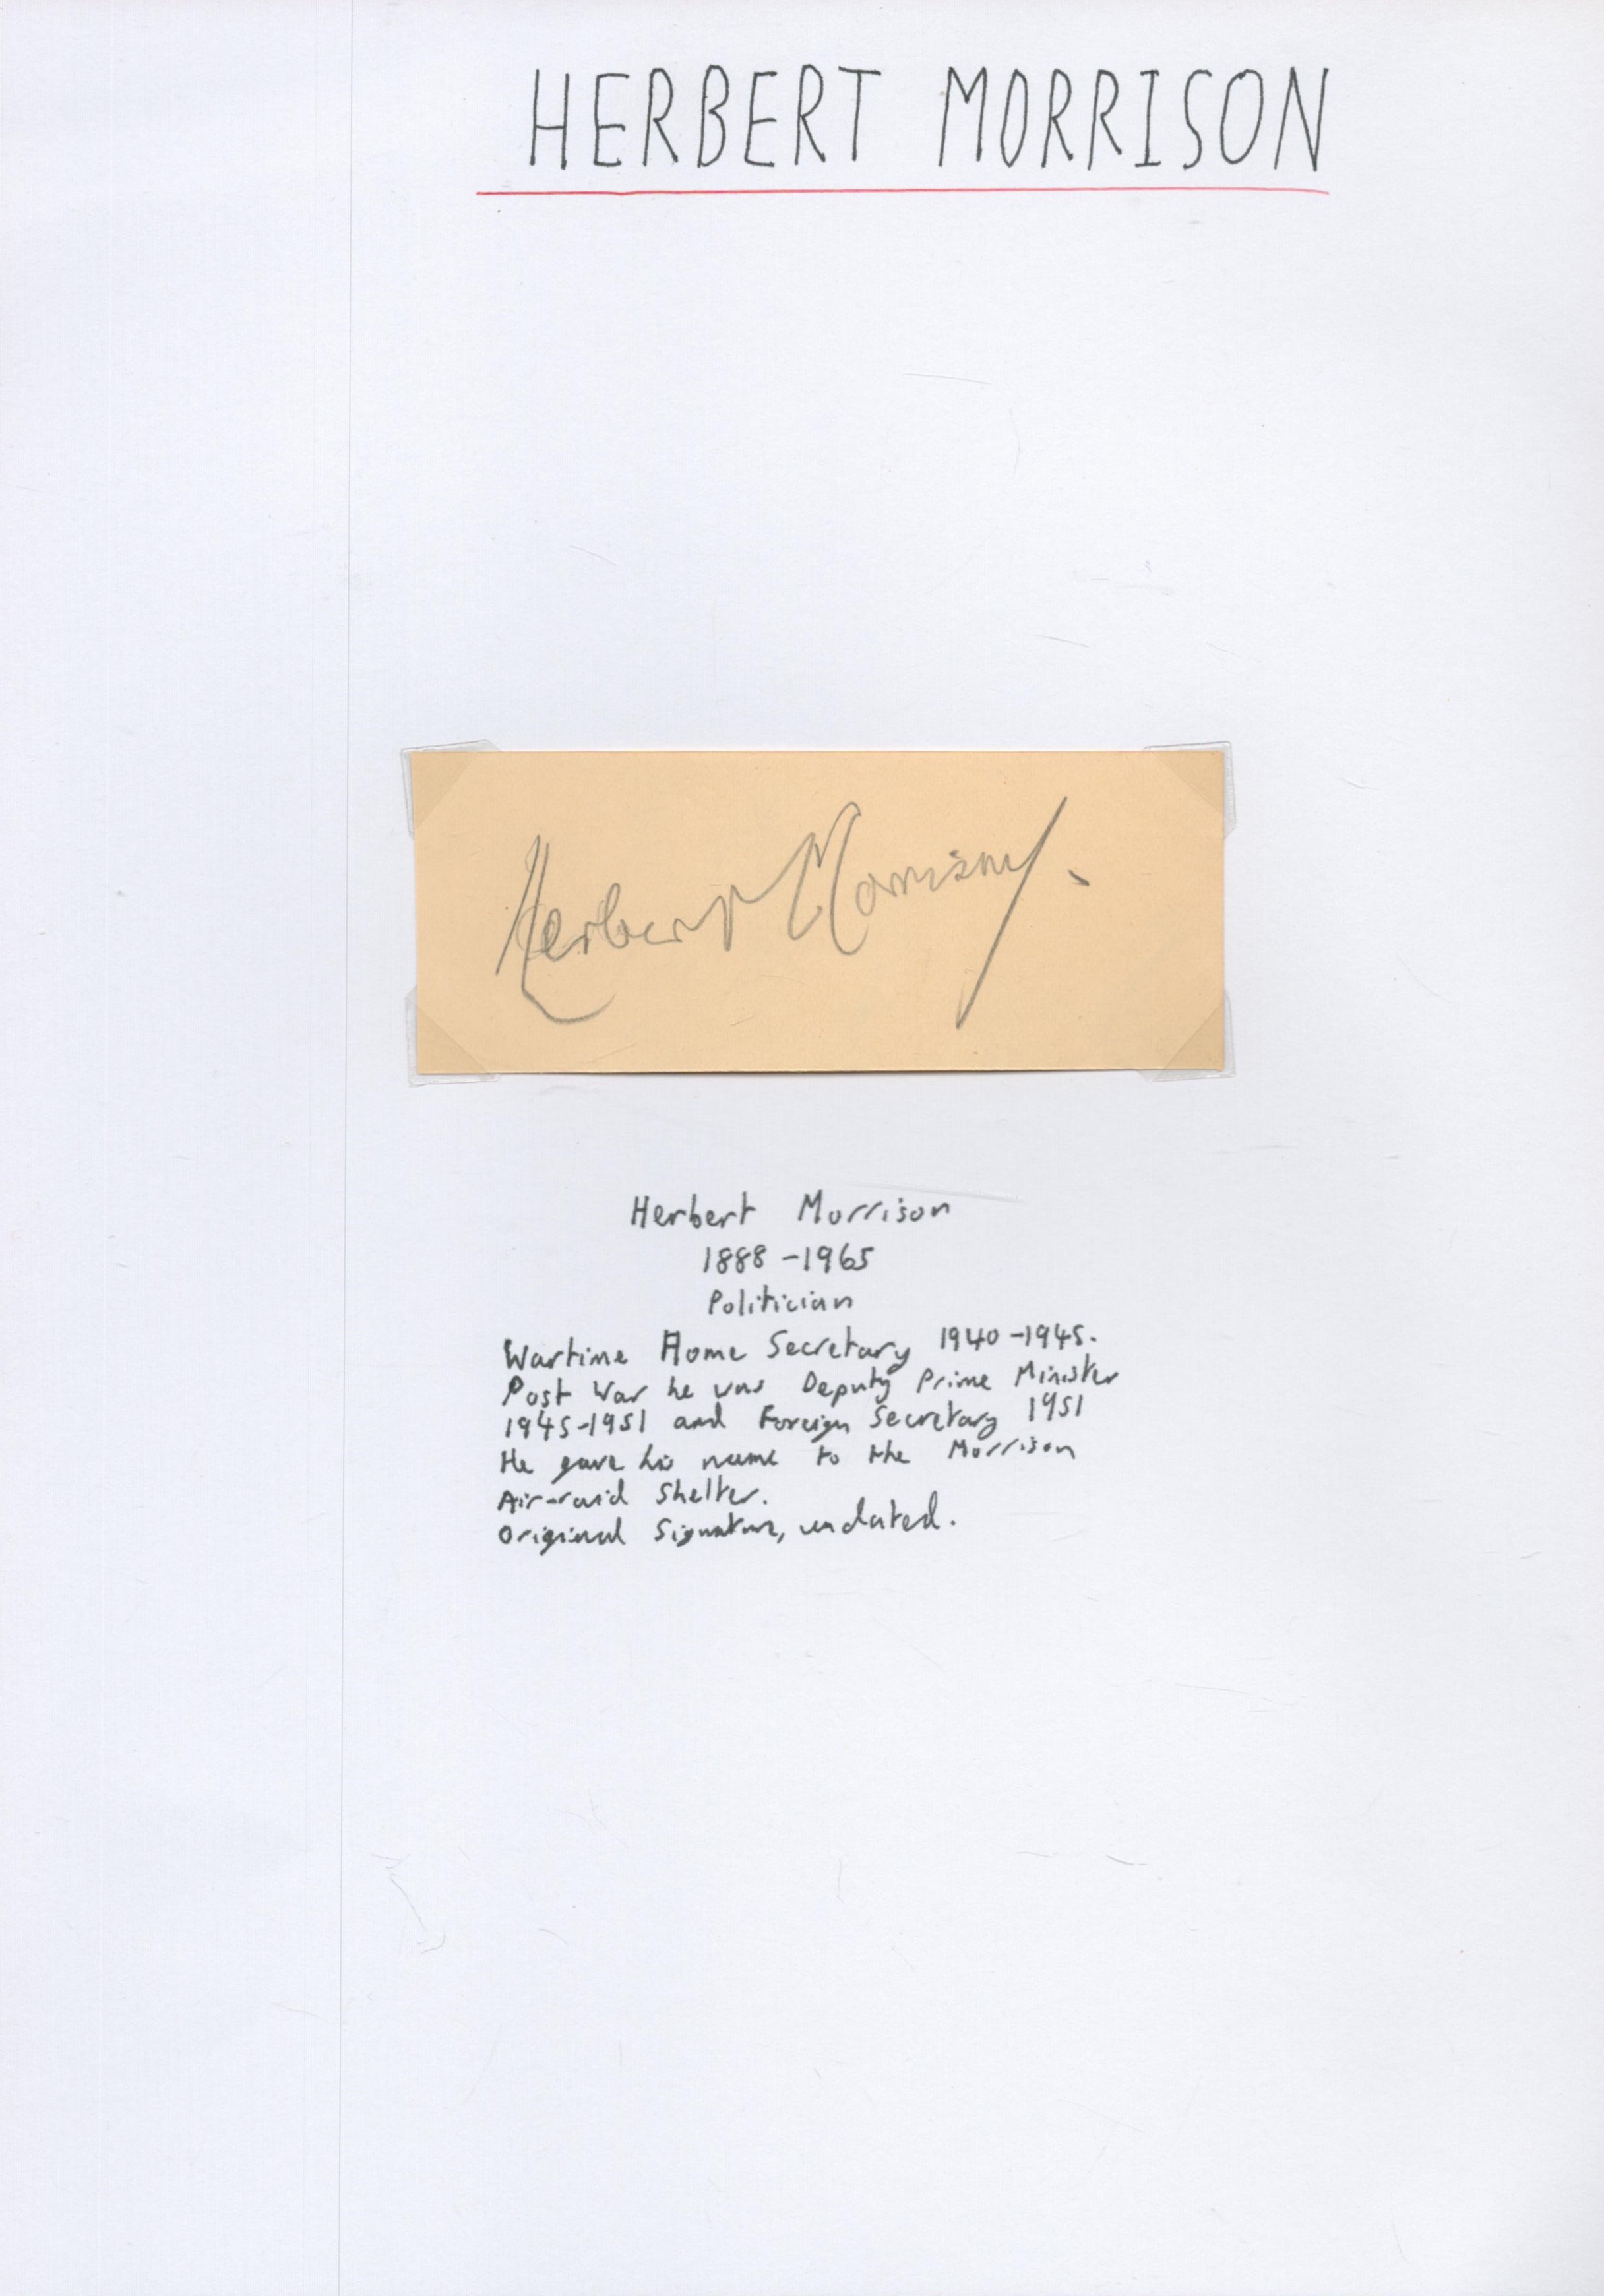 HERBERT MORRISON
Herbert Morrison.
Herbert Morrison
1888-1965
Politician
Wartime Home Secretary 1940-1945.
Post War he was Deputy Prime Minister
1945-1951 and Foreign Secretary 1951
He gave his name to the Morrison
Air-raid Shelter.
Original Signature, undated.